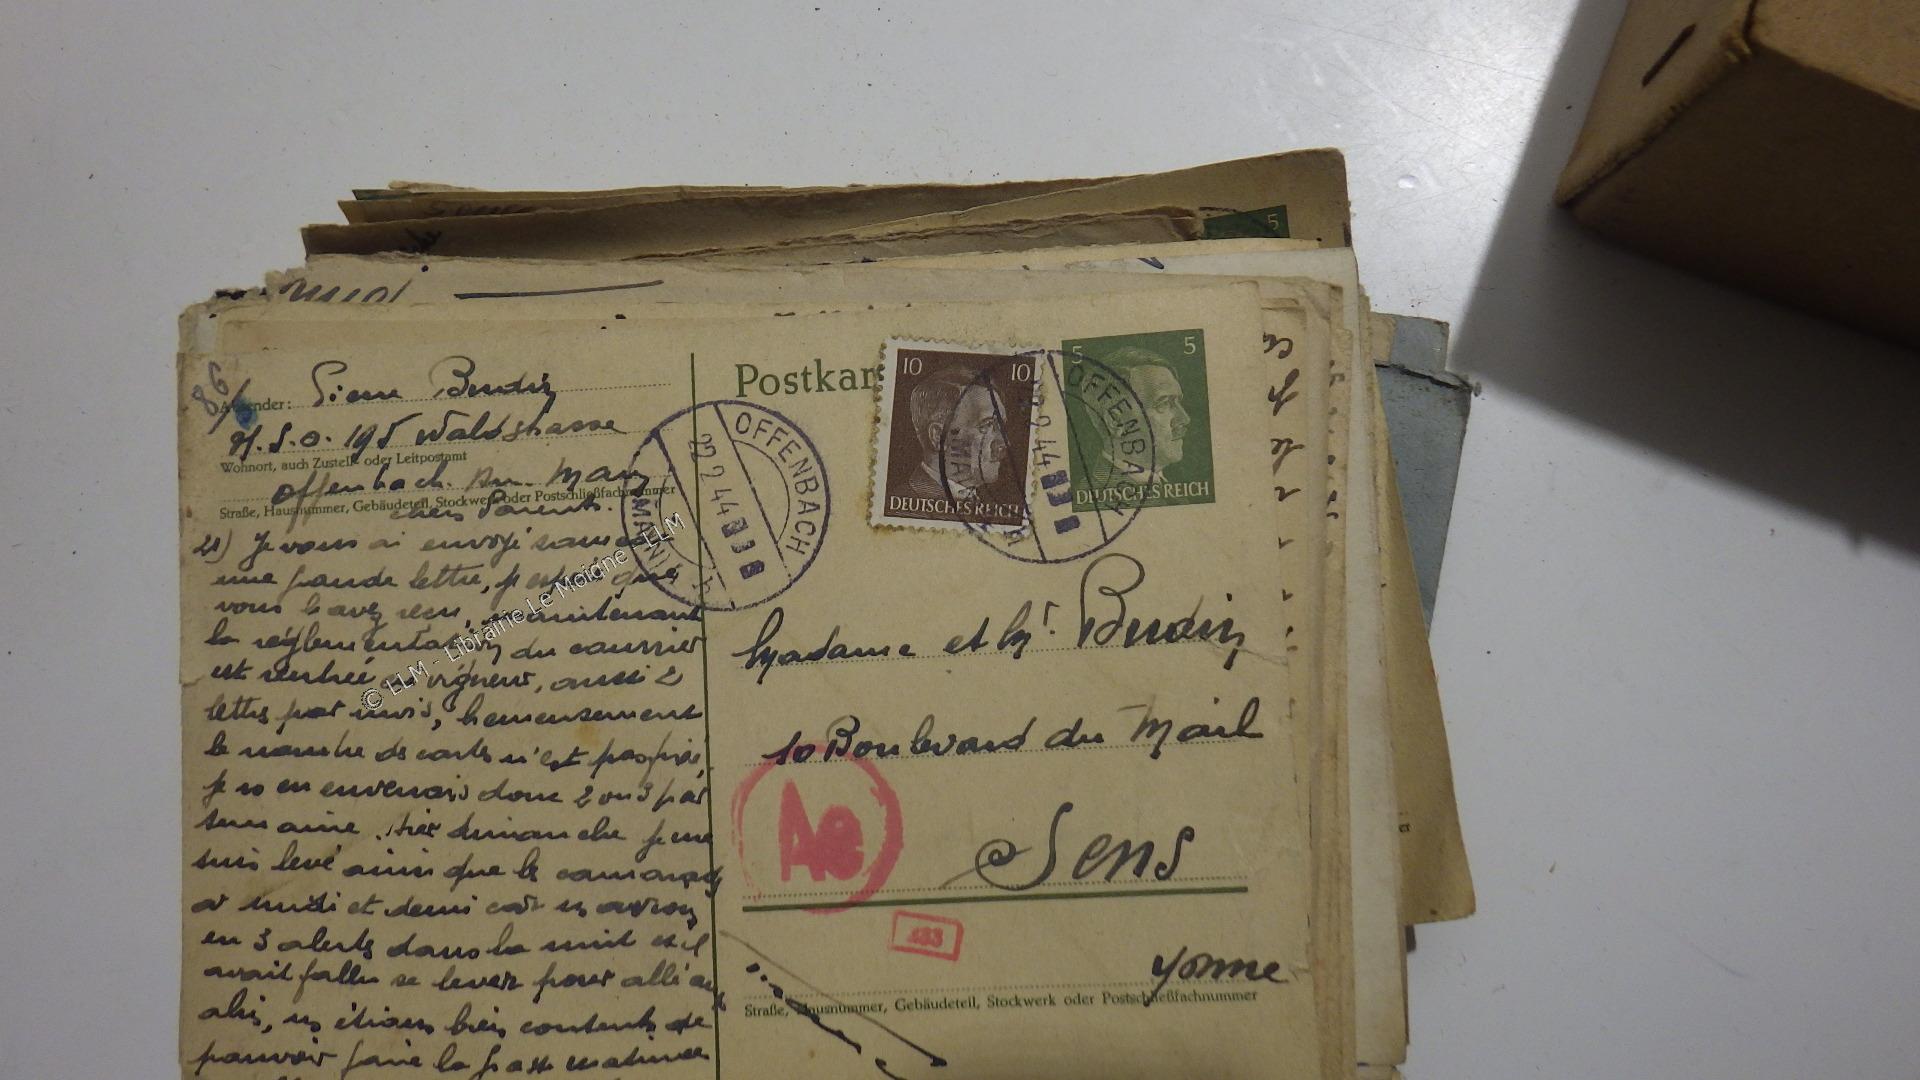 86
Absender: Pierre Berdin
H. S. O. 195 Waldstrasse
Wohnort, auch Zustell- oder Leitpostamt
Offenbach. Am. Main
Straße, Hausnummer, Gebäudeteil, Stockwerk oder Postschließfachnummer
chers Parents.
21) Je vous ai envoyé samedi
une grande lettre, j'espère que
vous l'avez reçu, maintenant
la réglementation du courrier
est rentrée en vigueur, aussi 2
lettres par mois, heureusement
le nombre de cartes n'est pas fixé,
je vs en enverrais donc 2 ou 3 par
semaine. Hier dimanche je me
suis levé ainsi que les camarades
à midi et demi car ns avions
eu 3 alertes dans la nuit et il
avait fallu se lever pour allé aux
abris, ns étions bien contents de
pouvoir faire la grasse matinée
Postkar
10 10
DEUTSCHES REICH
5 5
DEUTSCHES REICH
OFFENBACH
22 2 44
(MAIN)
h
OFFENBACH
2 44
(MAIN)
h
Madame et Mr. Berdin
10 Boulevard du Mail
Sens
Yonne
Straße, Hausnummer, Gebäudeteil, Stockwerk oder Postschließfachnummer
Ae
5
© LLM - Librairie Le Moidne - LLM